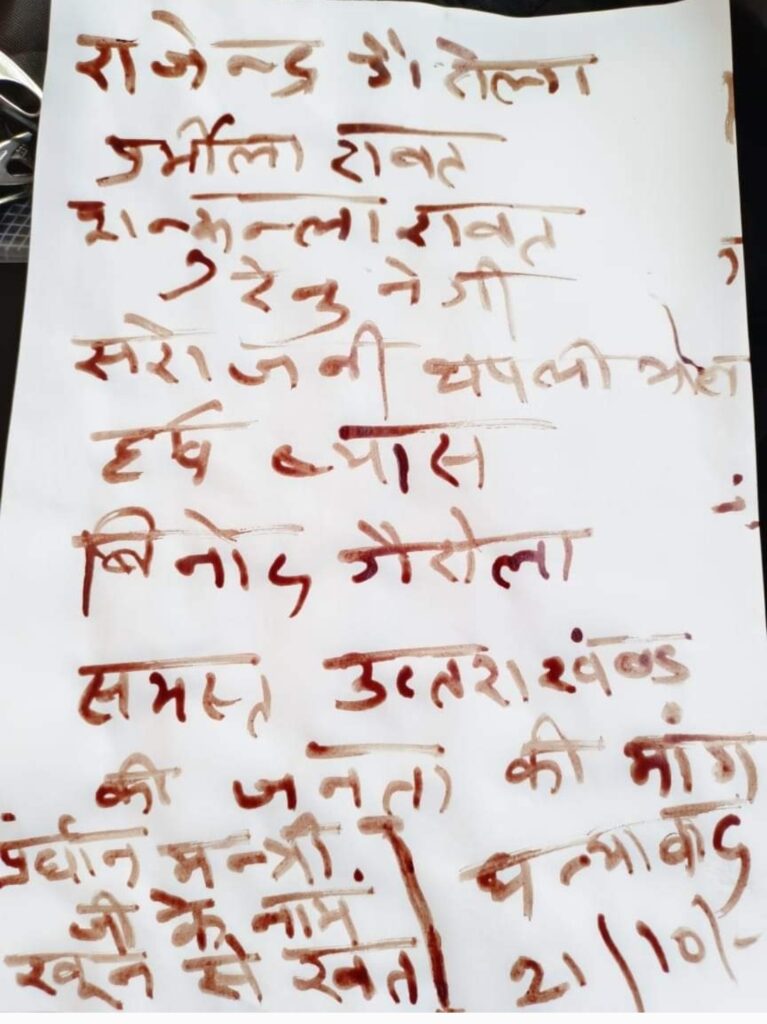 राजेन्द्र
उर्मीला रावत
शकुन्तला रावत
रेनु नेगी
सरोजनी थपलीयाल
हर्ष ब्यास
बिनोद गैरोला
समस्त उत्तराखंण्ड
की जनता की मांग
प्रधान मन्त्री
जी के नाम
खून से खत
धन्यावाद
21/10/-